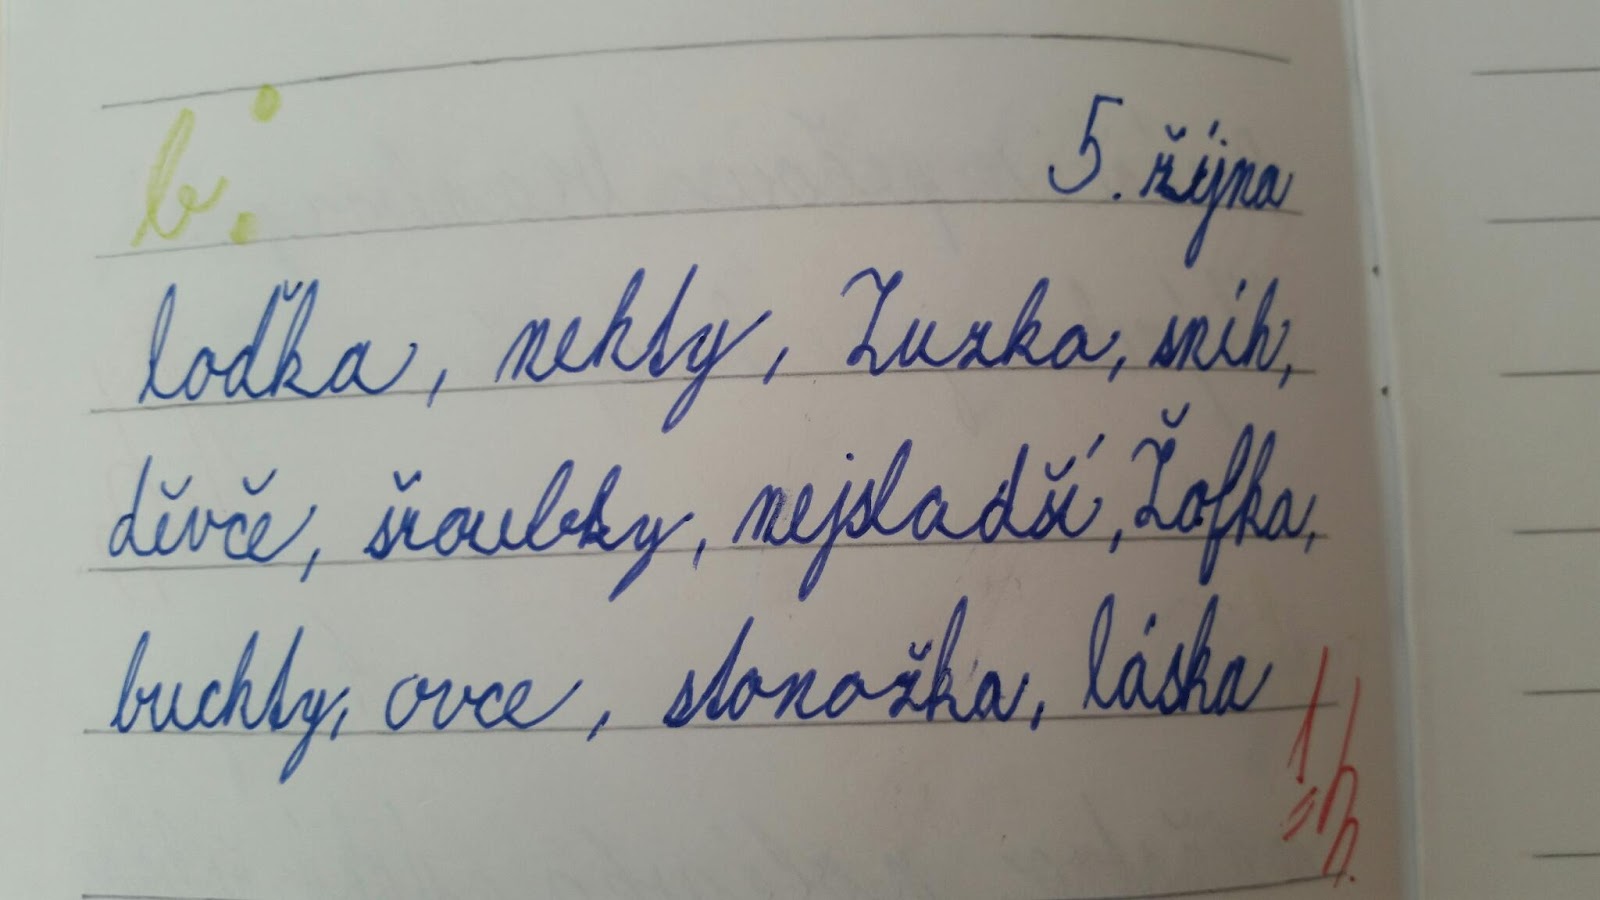 b:
5. října
loďka, nehty, Zuzka, sníh,
děvče, šroubky, nejsladší, Žofka,
buchty, ovce, stonožka, láska
1